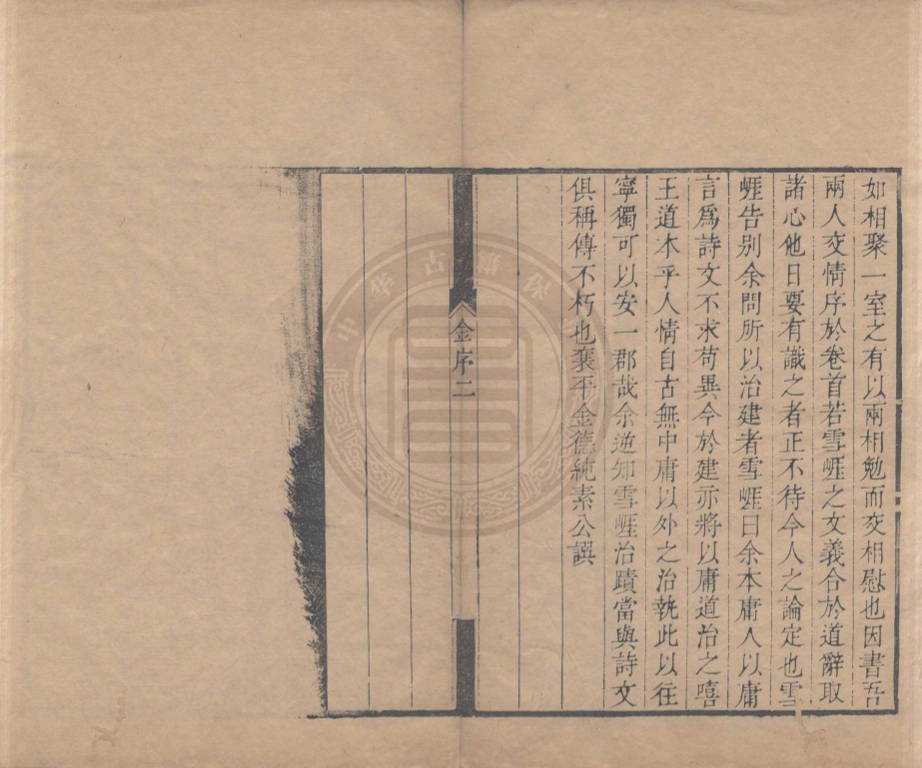 如相聚一室之有以兩相勉而交相慰也因書吾
兩人交情序於卷首若雪崕之文義合於道辭取
諸心他日要有識之者正不待今人之論定也雪
崕告别余問所以治建者雪崕曰余本庸人以庸
言爲詩文不求苟異今於建亦將以庸道治之嘻
王道本乎人情自古無中庸以外之治執此以往
寧獨可以安一郡哉余逆知雪崕治蹟當與詩文
俱稱傳不朽也襄平金德純素公譔
金序二